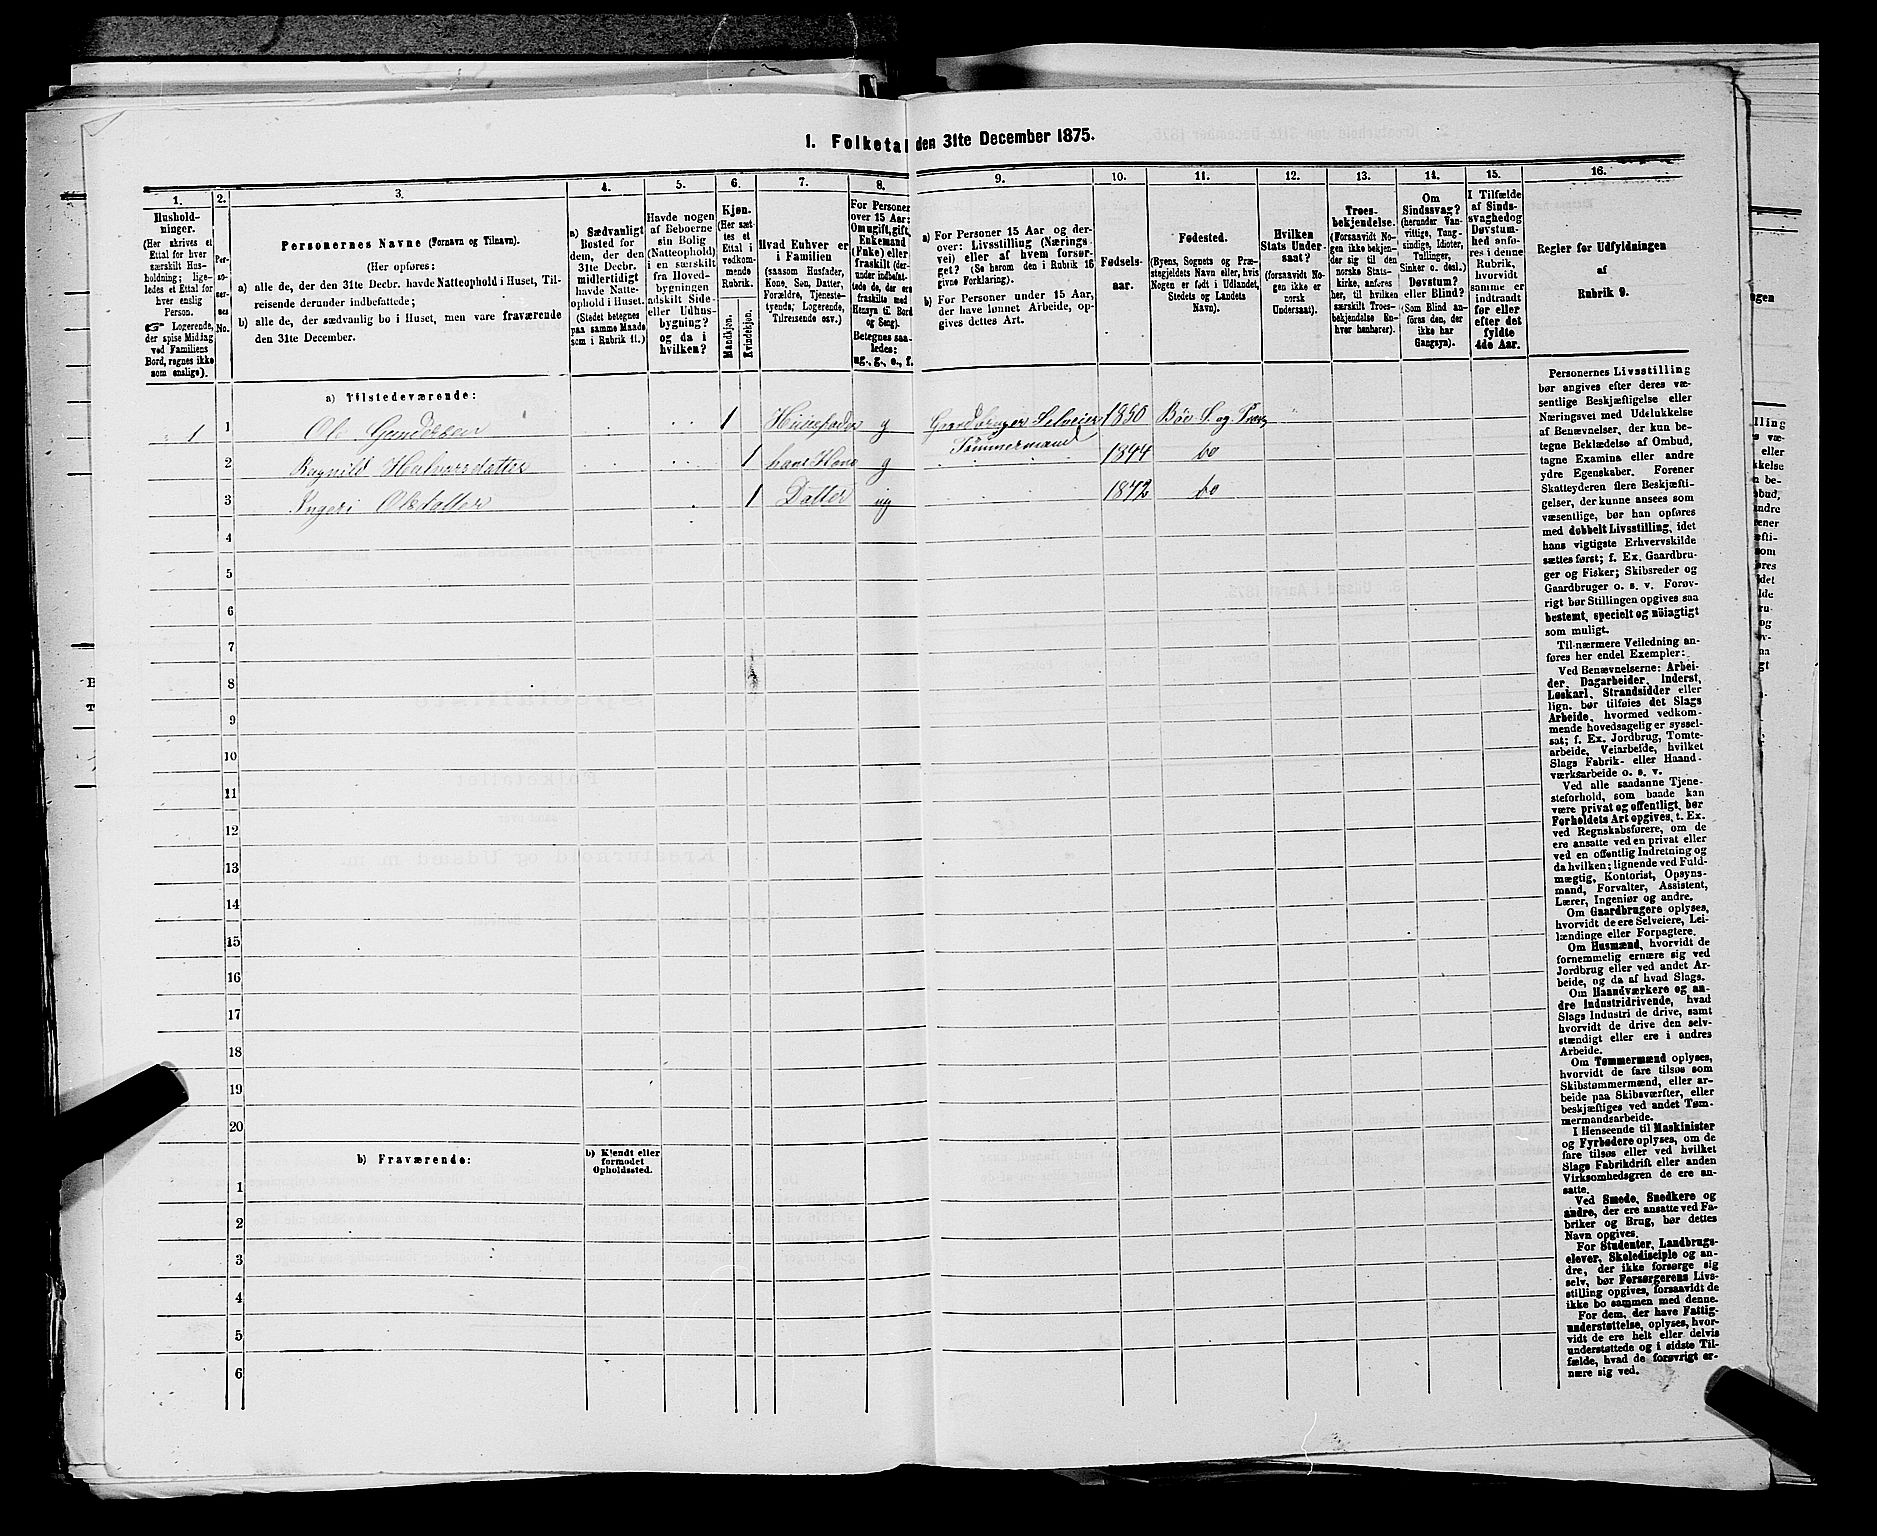 1. Folketal den 31te December 1875.
1.
Hushold-
ninger.
(Her skrives et
Ettal for hver
særskilt Hus-
holdning; lige-
ledes et Ettal for
hver enslig
Person.
☞ Logerende,
der spise Middag
ved Familiens
Bord, regnes ikke
som enslige).
2.
Per-
so-
ner-
nes
No.
3.
Personernes Navne (Fornavn og Tilnavn).
(Her opføres:
a) alle de, der den 31te Decbr. havde Natteophold i Huset, Til-
reisende derunder indbefattede;
b) alle de, der sædvanlig bo i Huset, men vare fraværende
den 31te December.
4.
a) Sædvanligt
Bosted for
dem, der den
31te Decbr.
midlertidigt
havde Natte-
ophold i Huset.
(Stedet betegnes
paa samme Maade
som i Rubrik 11.)
5.
Havde nogen
af Beboerne
sin Bolig
(Natteophold)
i en særskilt
fra Hoved-
bygningen
adskilt Side-
eller Udhus-
bygning?
og da i
hvilken?
6.
Kjøn.
(Her sæt-
tes et
Ettal i
vedkom-
mende
Rubrik.
Mandkjøn.
Kvindekjøn.
7.
Hvad Enhver er
i Familien
(saasom Husfader,
Kone, Søn, Datter,
Forældre, Tjeneste-
tyende; Logerende,
Tilreisende osv.)
8.
For Personer
over 15 Aar:
Om ugift, gift,
Enkemand
(Enke) eller
fraskilt (der-
under indbefat-
tede de, der ere
fraskilte med
Hensyn til Bord
og Seng).
Betegnes saa-
ledes:
ug., g., e., f.
9.
a) For Personer 15 Aar og der-
over: Livsstilling (Nærings-
vei) eller af hvem forsør-
get? (Se herom den i Rubrik 16
givne Forklaring).
b) For Personer under 15 Aar,
der have lønnet Arbeide, op-
gives dettes Art.
10.
Fødsels-
aar.
11.
Fødested.
(Byens, Sognets og Præ-
stegjeldets Navn eller, hvis
Nogen er født i Udlandet,
Stedets og Landets
Navn).
12.
Hvilken
Stats Under-
saat?
(forsaavidt No-
gen ikke er
norsk
Undersaat).
13.
Troes-
bekjendelse.
(Forsaavidt No-
gen ikke bekjen-
der sig til den
norske Stats-
kirke, anføres
her, til hvilken
særskilt Troes-
bekjendelse En-
hver henhører).
14.
Om
Sindssvag?
(herunder Van-
vittige, Tung-
sindige, Idioter,
Tullinger,
Sinker o. desl.)
Døvstum?
eller Blind?
(Som Blind an-
føres den, der
ikke har
Gangsyn).
15.
I Tilfælde
af Sinds-
svaghed og
Døvstum-
hed anfø-
res i denne
Rubrik,
hvorvidt
samme er
indtraadt
før eller
efter det
fyldte
4de Aar.
16.
Regler for Udfyldningen
af
Rubrik 9.
a) Tilstedeværende:
1 1 Ole Gundersen 1 Huusfader g Gaardbruger Selveier Tømmermand 1850 Bøe S. og
2 Ragnild Halvorsdatter 1 hans Kone g 1844 do
3 Ingeri Olsdatter 1 Datter ug 1872 do
4
5
6
7
8
9
10
11
12
13
14
15
16
17
18
19
20
b) Fraværende:
b) Kjendt eller
formodet
Opholdssted.
1
2
3
4
5
6
Personernes Livsstilling
bør angives efter deres væ-
sentlige Beskjæftigelse eller
Næringsvei med Udelukkelse
af Benævnelser, der kun be-
tegne Beklædelse af Ombud,
tagne Examina eller andre
ydre Egenskaber. Forener
Skatteyderen flere Beskjæfti-
gelser, der kunne ansees som
væsentlige, bør han opføres
med dobbelt Livsstilling, idet
hans vigtigste Erhvervskilde
sættes først; f. Ex. Gaardbru-
ger og Fisker; Skibsreder og
Gaardbruger o. s. v. Forøv-
rigt bør Stillingen opgives saa
bestemt, specielt og nöiagtigt
som muligt.
Til nærmere Veiledning an-
føres her endel Exempler:
Ved Benævnelserne: Arbei-
der, Dagarbeider, Inderst,
Løskarl, Strandsidder eller
lign. bør tilføies det Slags
Arbeide, hvormed vedkom-
mende hovedsagelig er syssel-
sat; f. Ex. Jordbrug, Tomte-
arbeide, Veiarbeide, hvilket
Slags Fabrik- eller Haand-
værksarbeide o. s. v.
Ved alle saadanne Tjene-
steforhold, som baade kan
være privat og offentligt, bør
Forholdets Art opgives, t. Ex.
ved Regnskabsførere, om de
ere ansatte ved en privat eller
ved en offentlig Indretning og
da hvilken; lignende ved Fuld-
mægtig, Kontorist, Opsyns-
mand, Forvalter, Assistent,
Lærer, Ingeniør og andre.
Om Gaardbrugere oplyses,
hvorvidt de ere Selveiere, Lei-
lændinge eller Forpagtere.
Om Husmænd, hvorvidt de
fornemmelig ernære sig ved
Jordbrug eller ved andet Ar-
beide, og da af hvad Slags.
Om Haandværkere og an-
dre Industridrivende, hvad
Slags Industri de drive, samt
hvorvidt de drive den selv-
stændigt eller ere i andres
Arbeide.
Om Tømmermænd oplyses,
hvorvidt de fare tilsøs som
Skibstømmermænd, eller ar-
beide paa Skibsværfter, eller
beskjæftiges ved andet Tøm-
mermandsarbeide.
I Henseende til Maskinister
og Fyrbødere oplyses, om de
fare tilsøs eller ved hvilket
Slags Fabrikdrift eller anden
Virksomhedsgren de ere an-
satte.
Ved Smede, Snedkere og
andre, der ere ansatte ved Fa-
briker og Brug, bør dettes
Navn opgives.
For Studenter, Landbrugs-
elever, Skoledisciple og an-
dre, der ikke forsørge sig
selv, bør Forsørgerens Livs-
stilling opgives, forsaavidt de
ikke bo sammen med denne.
For dem, der have Fattig-
understøttelse, oplyses, hvor-
vidt de ere helt eller delvis
understøttede og i sidste Til-
fælde, hvad de forøvrigt er-
nære sig ved.